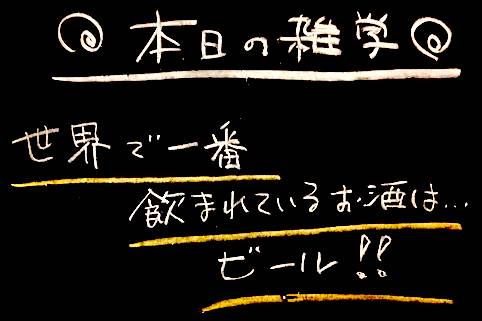 本日の雑学
世界で一番
飲まれているお酒は…
ビール!!